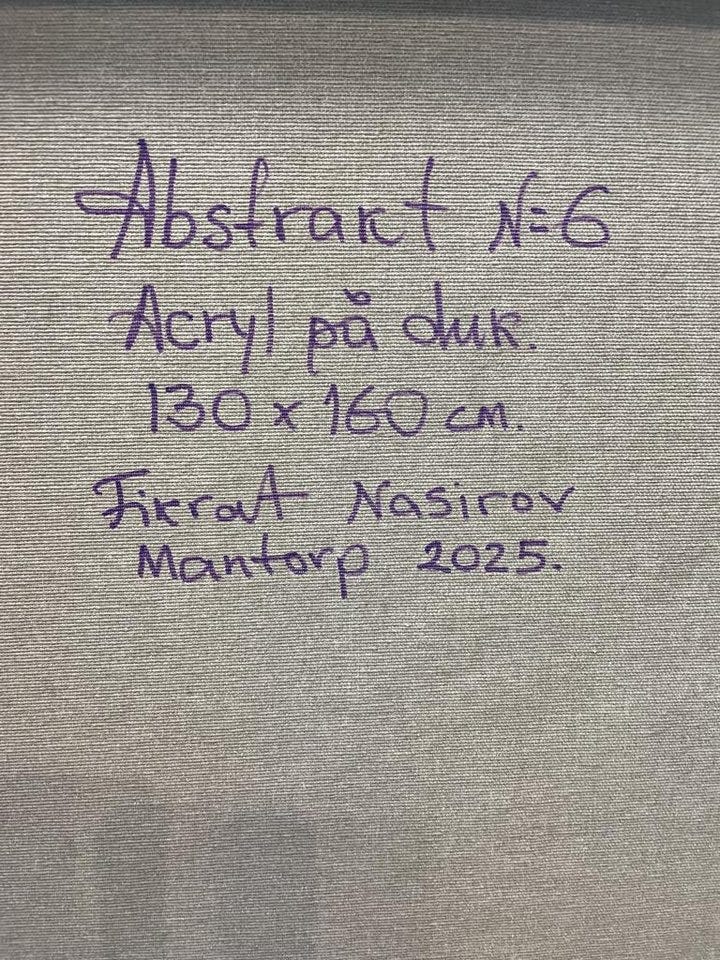 Abstrakt N=6
Acryl på duk.
130 x 160 cm.
Fikrat Nasirov
Mantorp 2025.